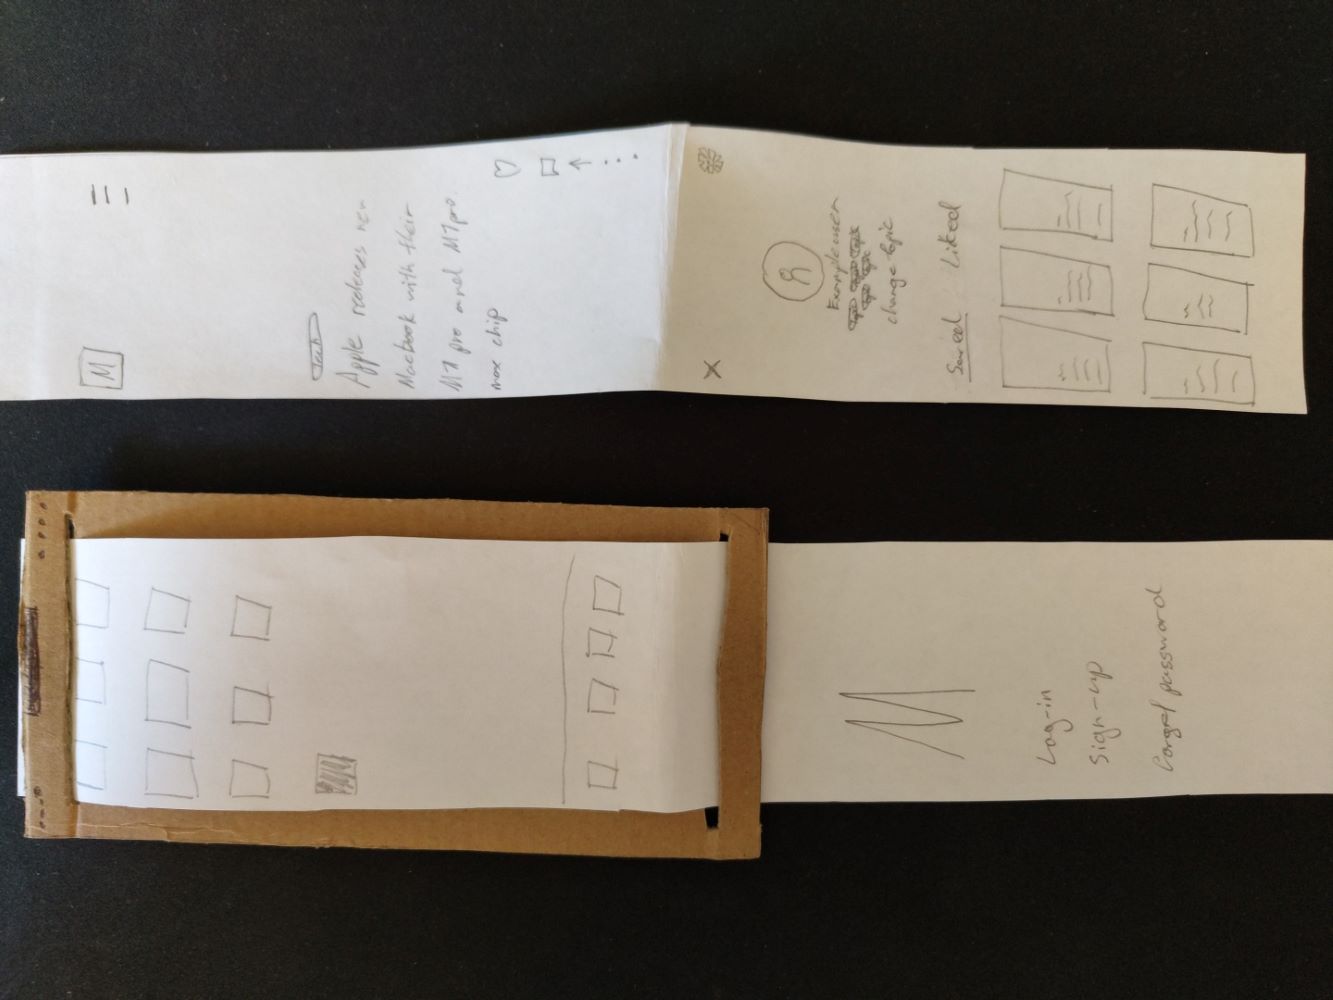 M
Log-in
Sign-up
Forget password
M
Tech
Apple releases new
Macbook with their
M1 pro and M1 pro
max chip
Example user
Topic Topic Topic
Topic Topic
change topic
Saved Liked